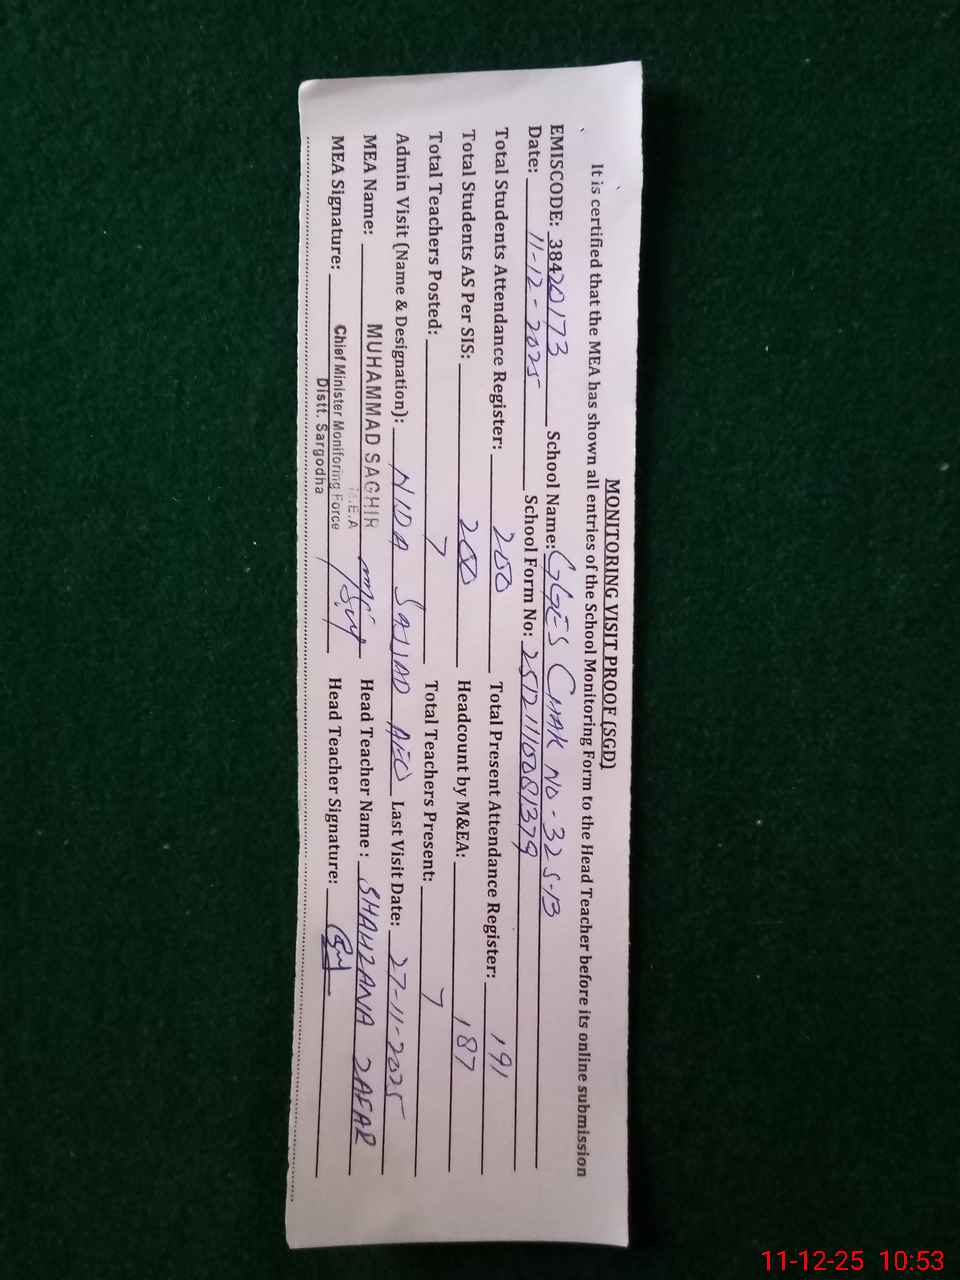 MONITORING VISIT PROOF (SGD)
It is certified that the MEA has shown all entries of the School Monitoring Form to the Head Teacher before its online submission
EMISCODE: 38420173 School Name: GGES CHAK NO-32 S-B
Date: 11-12-2025 School Form No: 25121110081379
Total Students Attendance Register: 200 Total Present Attendance Register: 191
Total Students AS Per SIS: 200 Headcount by M&EA: 187
Total Teachers Posted: 7 Total Teachers Present: 7
Admin Visit (Name & Designation): NIDA SAJJAD AEO Last Visit Date: 27-11-2025
MEA Name: MUHAMMAD SAGHIR Head Teacher Name: ZAFAR
M.E.A
MEA Signature: Chief Minister Monitoring Force Head Teacher Signature:
Distt. Sargodha
11-12-25 10:53